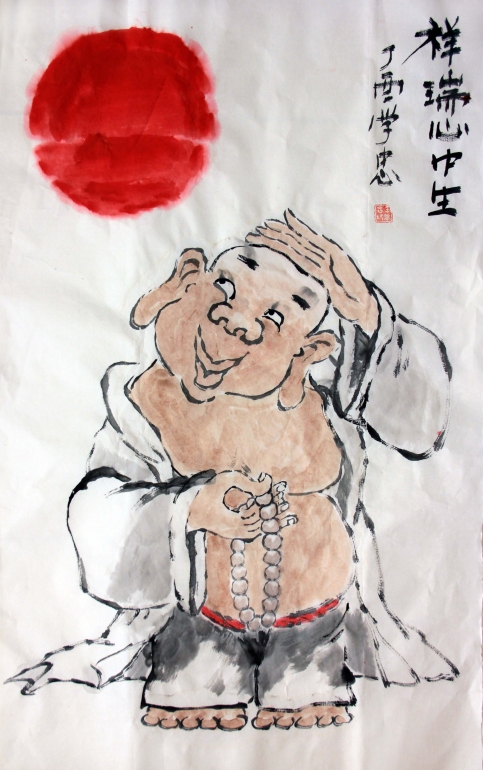 祥瑞心中生
丁酉学忠